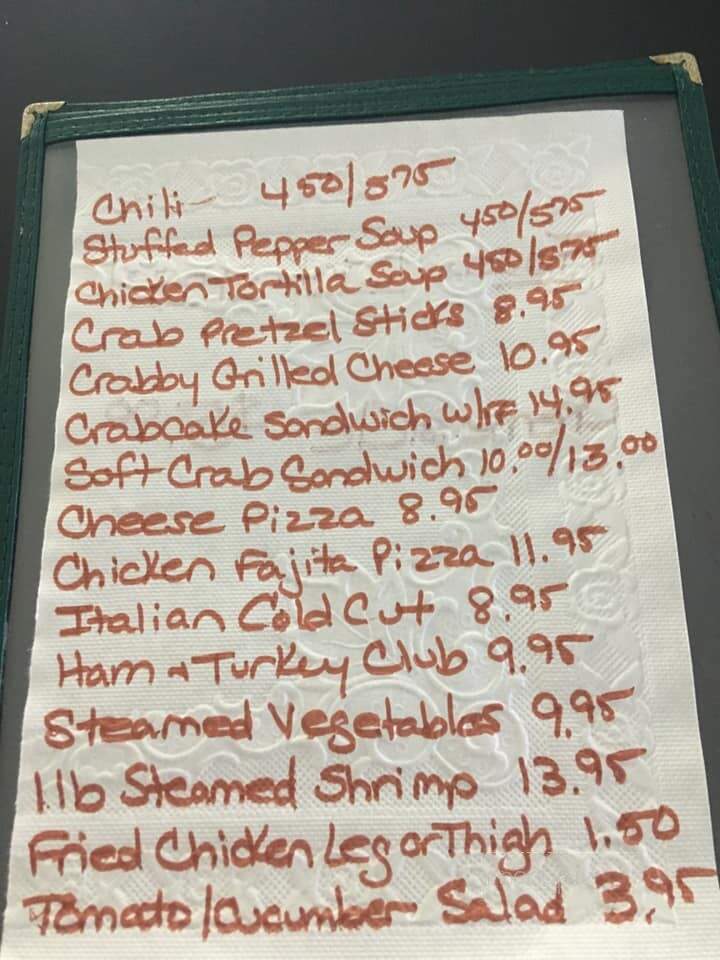 Chili - 450/575
Stuffed Pepper Soup 450/575
Chicken Tortilla Soup 450/575
Crab Pretzel Sticks 8.95
Crabby Grilled Cheese 10.95
Crabcake Sandwich w/FF 14.95
Soft Crab Sandwich 10.00/13.00
Cheese Pizza 8.95
Chicken Fajita Pizza 11.95
Italian Cold Cut 8.95
Ham + Turkey Club 9.95
Steamed Vegetables 9.95
1 lb Steamed Shrimp 13.95
Fried Chicken Leg or Thigh 1.50
Tomato/Cucumber Salad 3.95